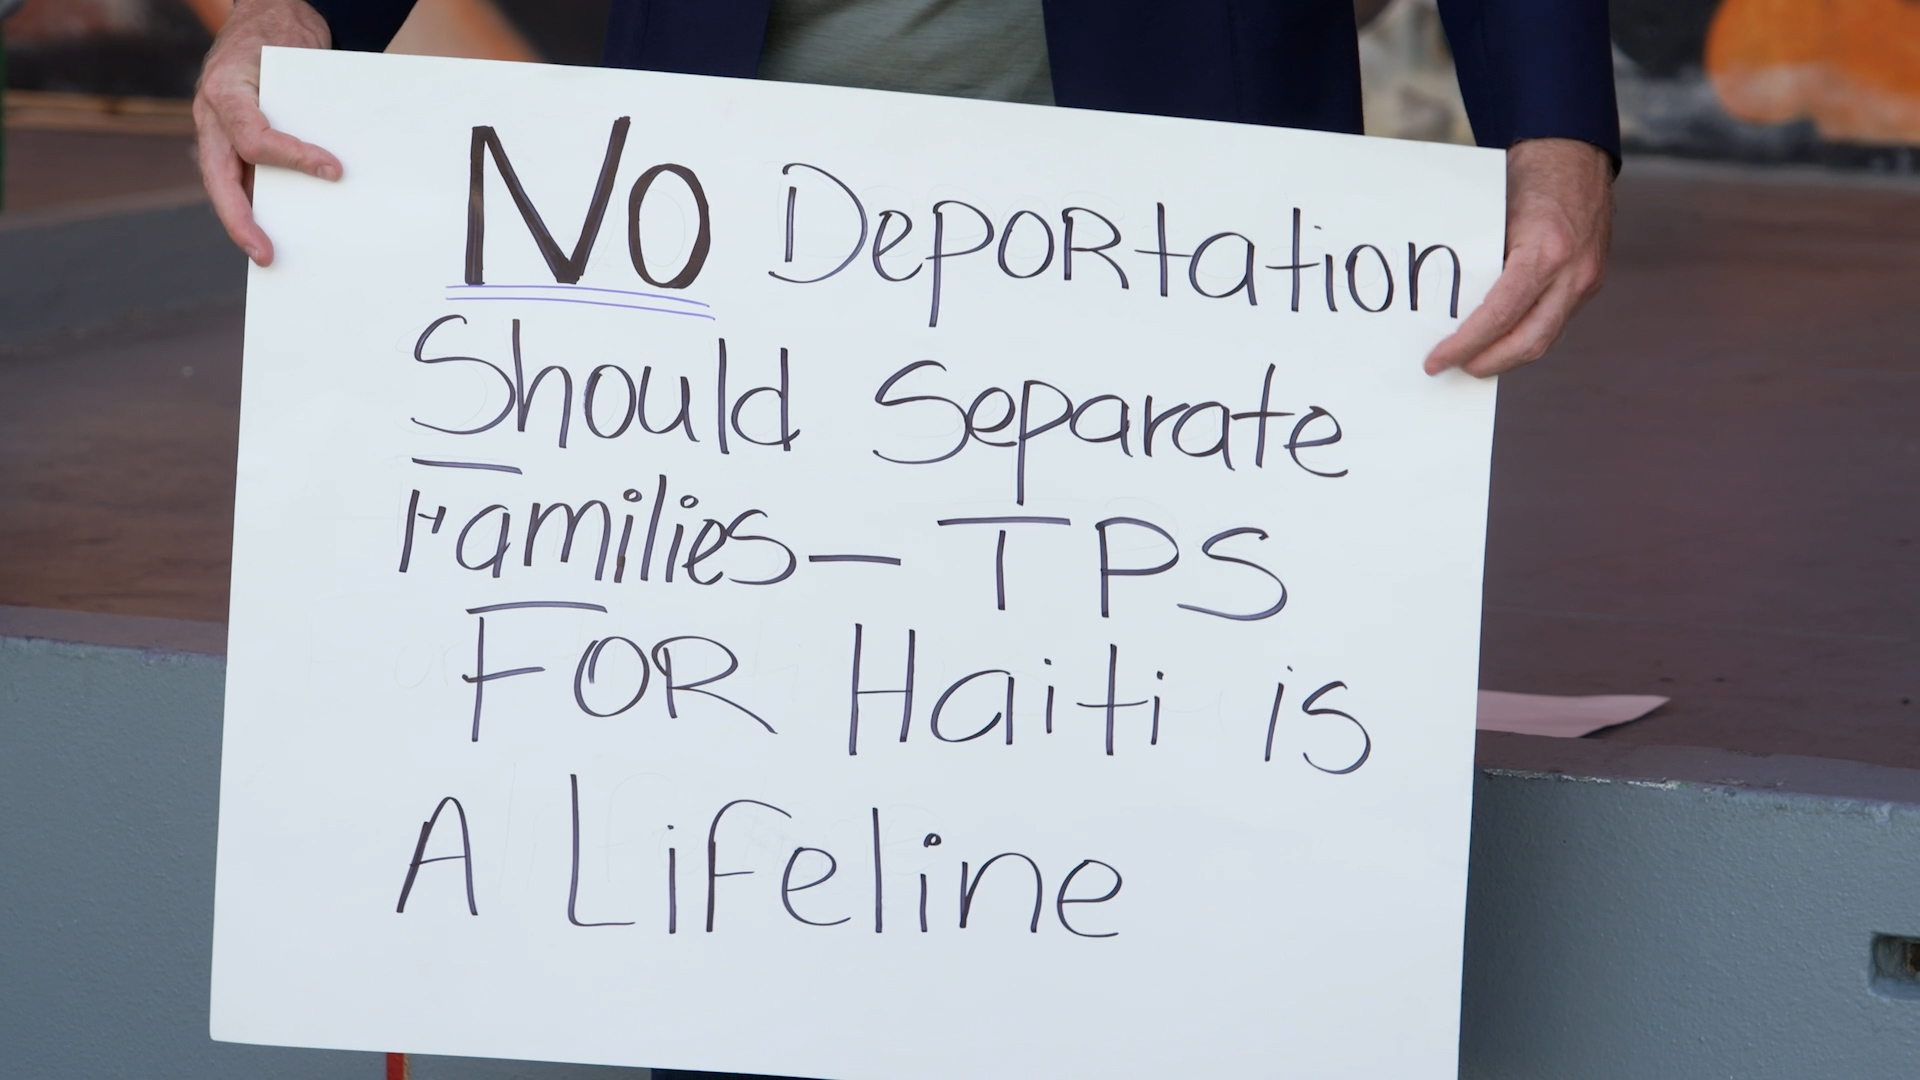 NO Deportation
Should Separate
Families- TPS
FOR Haiti is
A Lifeline